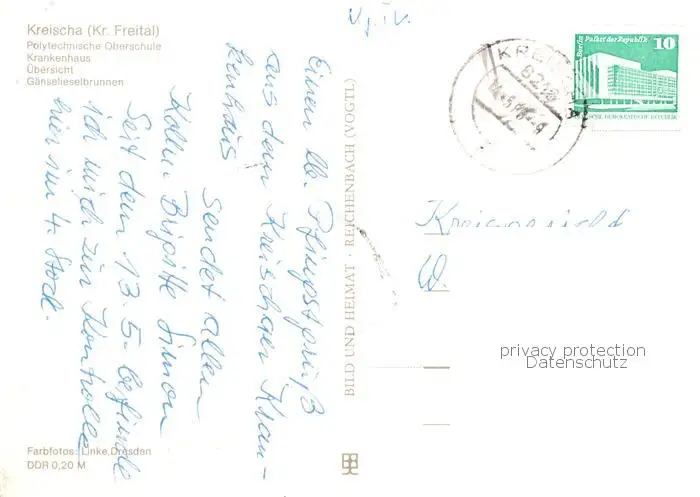 Kreischa (Kr. Freital)
Polytechnische Oberschule
Krankenhaus
Übersicht
Gänselieselbrunnen
Einen lb. Pfingstgruß
aus dem Kreischaer Kran-
kenhaus
sendet allen
Kolln. Brigitte Simon
Seit dem 13.5. befinde
ich mich zur Kontrolle
hier im 4. Stock.
Farbfotos: Linke, Dresden
DDR 0,20 M
BILD UND HEIMAT · REICHENBACH (VOGTL)
Berlin Palast der Republik
10
DEUTSCHE DEMOKRATISCHE REPUBLIK
Kreisgericht
W.
privacy protection
Datenschutz